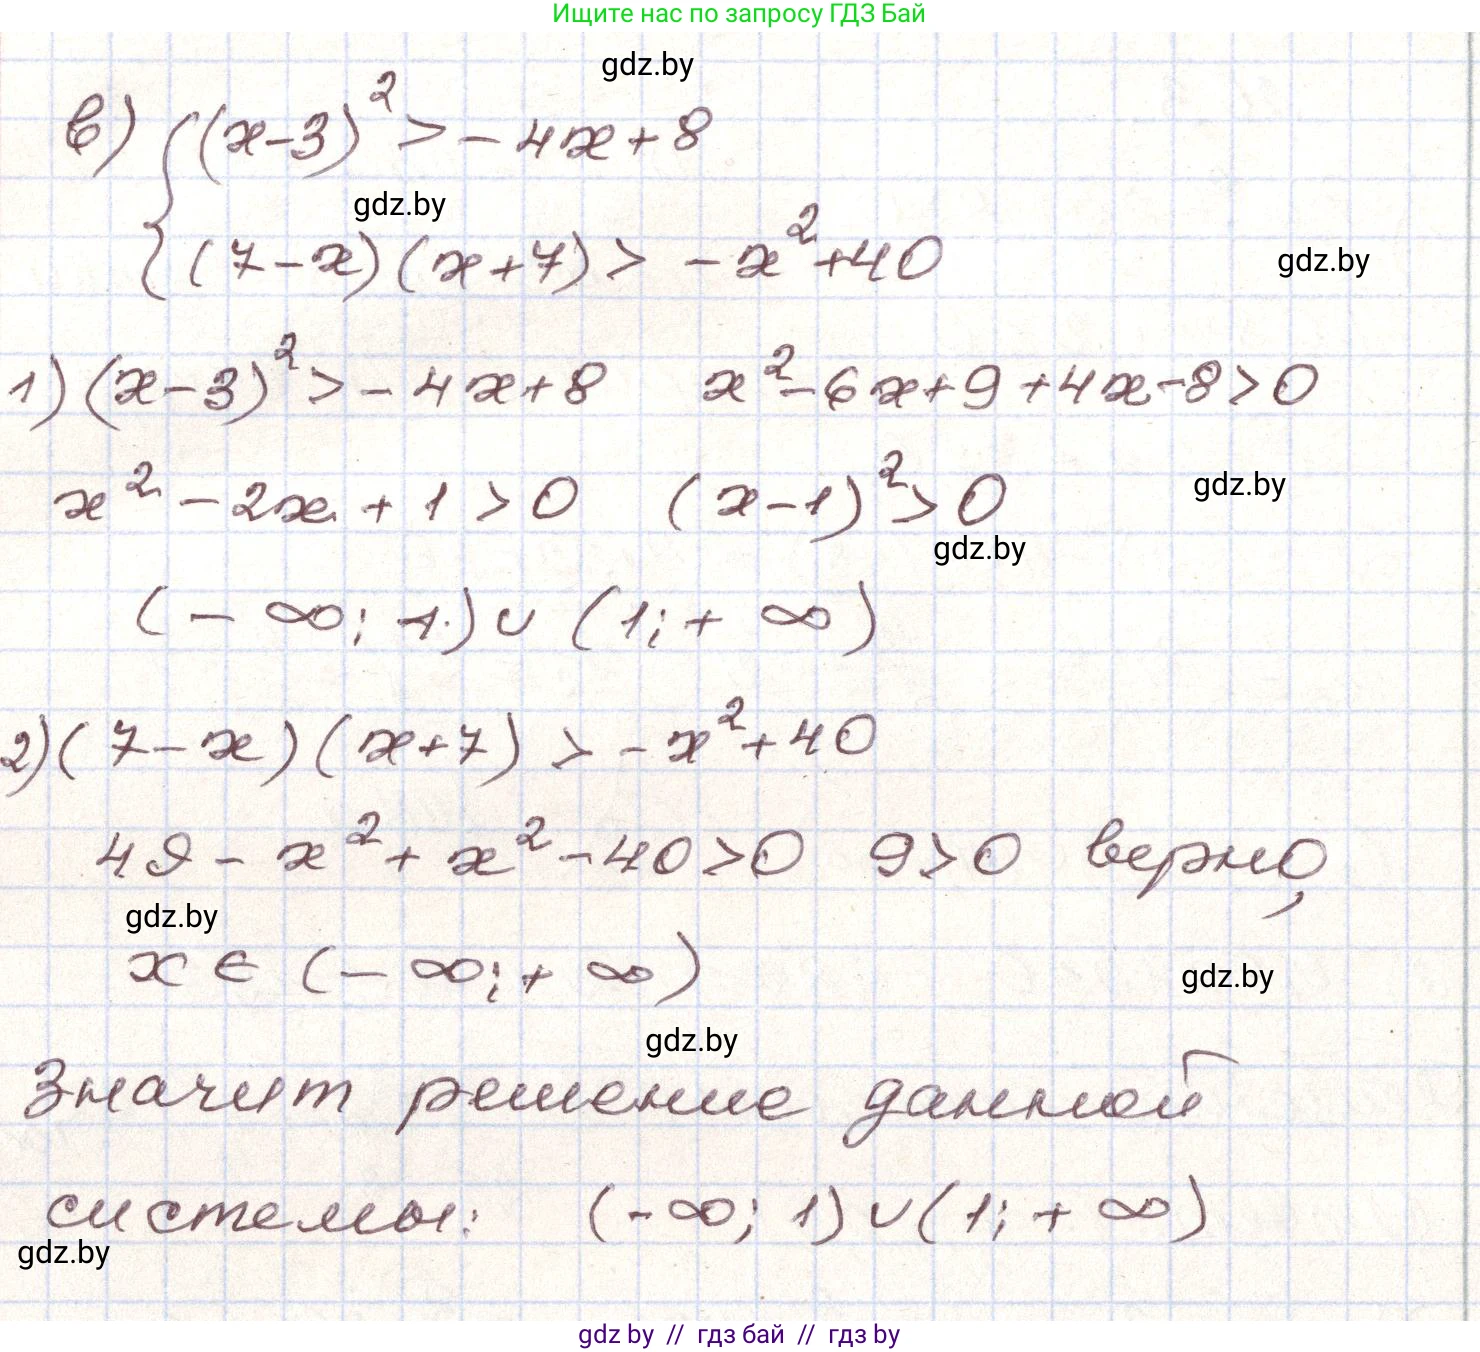 Ищите нас по запросу ГДЗ Бай
gdz.by
в) { (x-3)² > -4x+8
gdz.by
(7-x)(x+7) > -x²+40
gdz.by
1) (x-3)² > -4x+8 x²-6x+9+4x-8>0
x²-2x+1>0 (x-1)²>0
gdz.by
gdz.by
(-∞; 1) ∪ (1; +∞)
2) (7-x)(x+7) > -x²+40
49-x²+x²-40>0 9>0 верно,
gdz.by
x ∈ (-∞; +∞)
gdz.by
gdz.by
Значит решение данной
системы: (-∞; 1) ∪ (1; +∞)
gdz.by
gdz by // гдз бай // гдз by